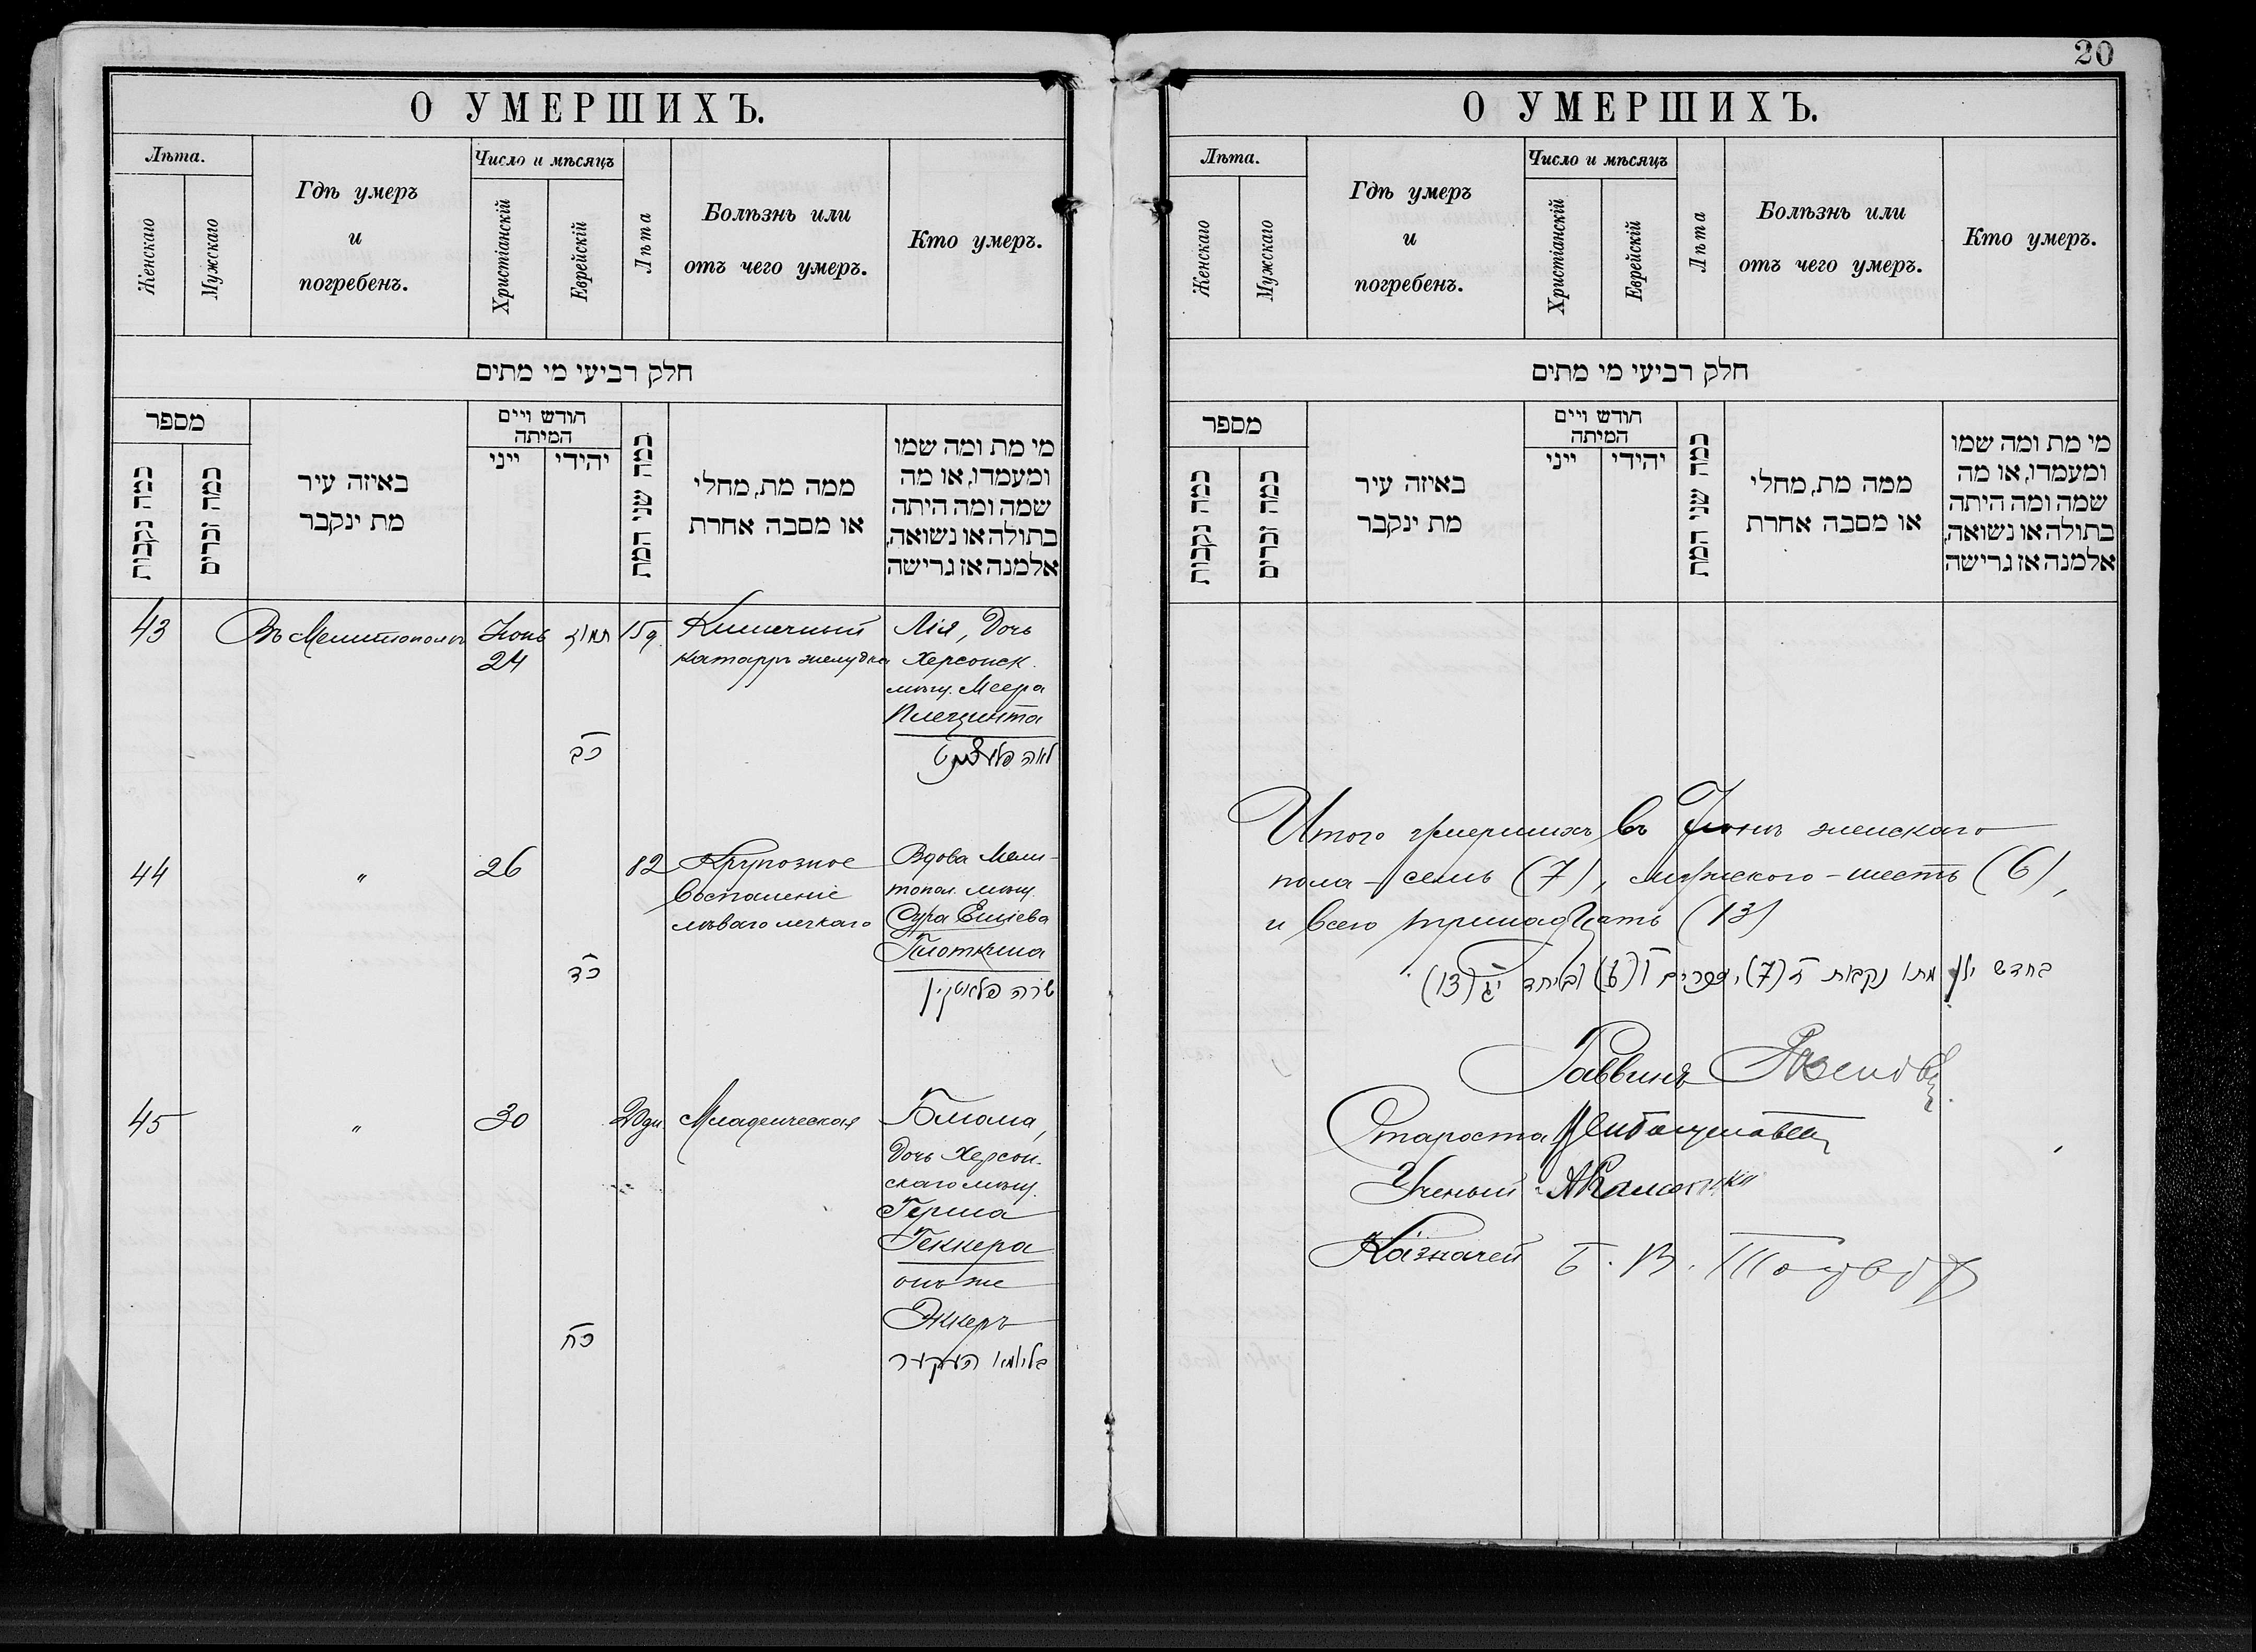 О УМЕРШИХЪ.
Лѣта.
Женскаго
Мужскаго
Гдѣ умеръ
и
погребенъ.
Число и мѣсяцъ
Христіанскій
Еврейскій
Лѣта
Болѣзнь или
отъ чего умеръ.
Кто умеръ.
חלק רביעי מי מתים
מספר
כמה נקבות
כמה זכרים
באיזה עיר
מת ינקבר
חודש ויים
המיתה
ייני
יהידי
כמה שני המת
ממה מת, מחלי
או מסבה אחרת
מי מת ומה שמו
ומעמדו, או מה
שמה ומה היתה
בתולה או נשואה,
אלמנה או גרישה
43
Въ Мелитополѣ
Іюнь
24
תמוז
כב
15 д.
Кишечный
катарръ желудка
Лія, Дочь
Херсонск.
мѣщ. Меера
Плецинта
לאה
44
"
26
כד
82
Крупозное
воспаленіе
лѣваго легкаго
Вдова Мели-
топол. мѣщ.
Сура Еліева
Плоткина
שרה פלאטקין
45
"
30
כח
20 дн.
Младенческая
Блюма,
Дочь Херсон-
скаго мѣщ.
Герша
Геккера
онъ же
Эккеръ
בליומא העקער
20
О УМЕРШИХЪ.
Лѣта.
Женскаго
Мужскаго
Гдѣ умеръ
и
погребенъ.
Число и мѣсяцъ
Христіанскій
Еврейскій
Лѣта
Болѣзнь или
отъ чего умеръ.
Кто умеръ.
חלק רביעי מי מתים
מספר
כמה נקבות
כמה זכרים
באיזה עיר
מת ינקבר
חודש ויים
המיתה
ייני
יהידי
כמה שני המת
ממה מת, מחלי
או מסבה אחרת
מי מת ומה שמו
ומעמדו, או מה
שמה ומה היתה
בתולה או נשואה,
אלמנה או גרישה
Итого умершихъ въ Іюнѣ женскаго
пола - семь (7), мужского - шесть (6),
и всего тринадцать (13)
בחדש מתו נקבות ז (7), זכרים ו (6) וביחד יג (13)
Раввинъ
Староста
Ученый
Казначей Б. В.